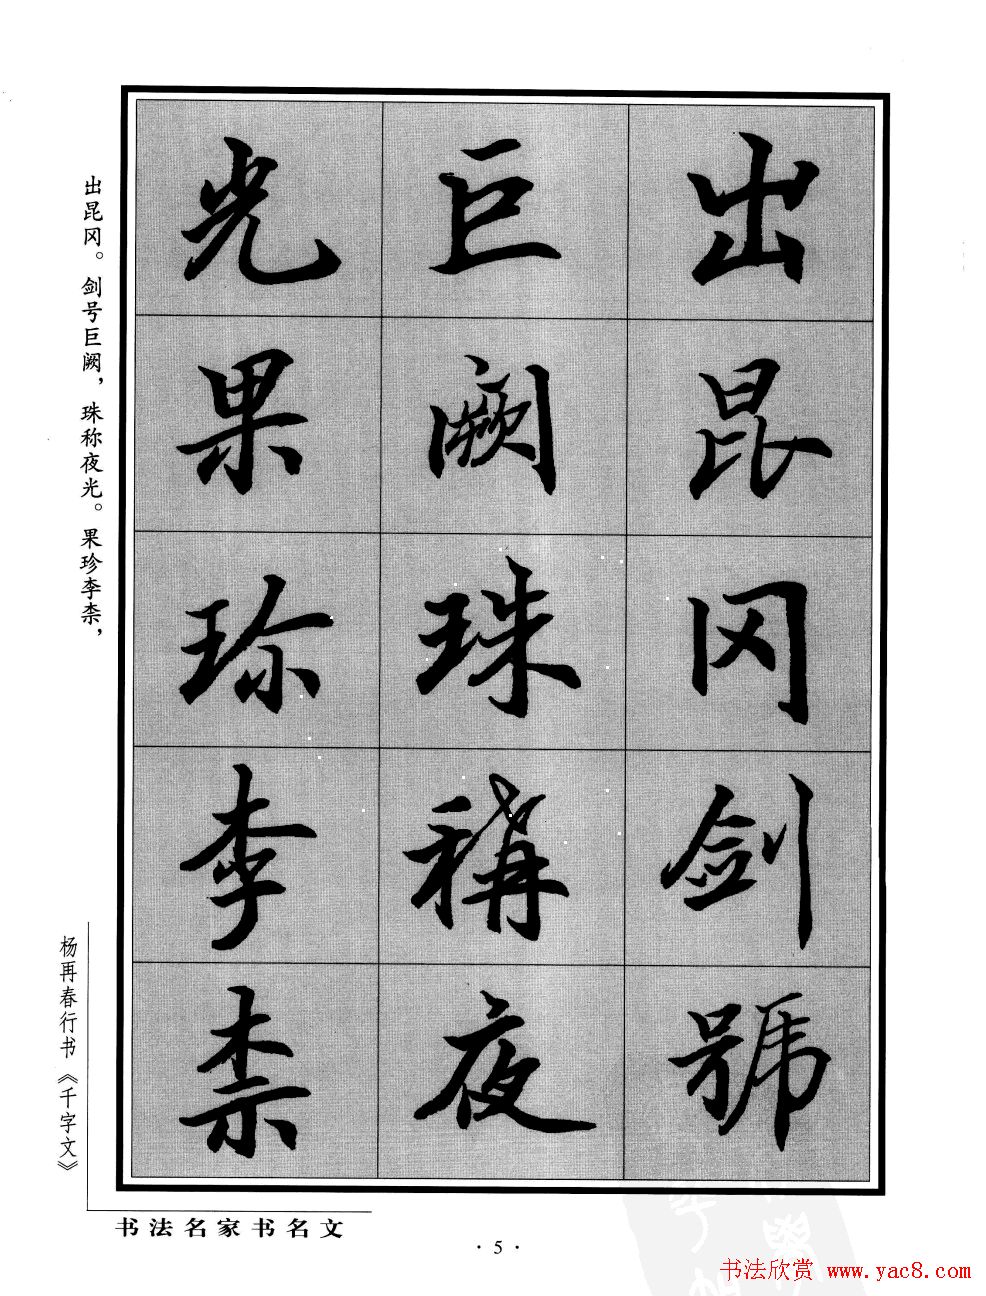 出昆冈剑號
巨阙珠稱夜
光果珍李柰
出昆冈。剑号巨阙，珠称夜光。果珍李柰，
杨再春行书《千字文》
书法名家书名文
·5·
书法欣赏 www.yac8.com